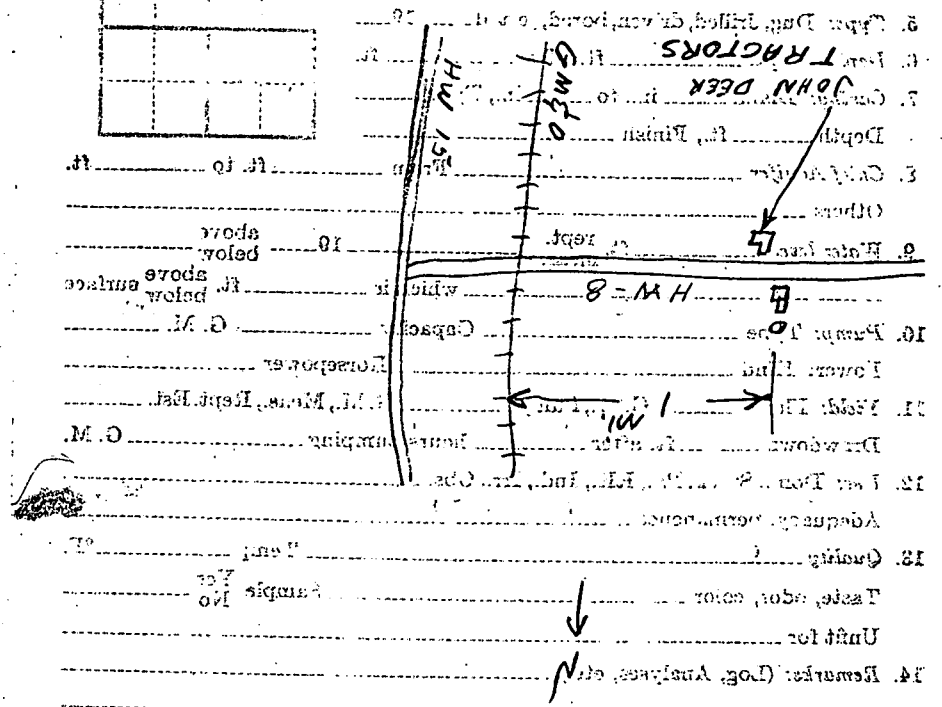 5. Type: Dug, drilled, driven, bored, 19
6. ft. ft.
TRACTORS
JOHN DEER
GM&O
HW 15
7. in. to
Depth ft., Finish
8. Chief Aquifer From ft. to ft.
Others
9. Water level ft. rept. 19 above below
HW-8
which is ft. above below surface
10. Pump: Type Capacity G. M.
Power: Kind Horsepower
1 MI
11. Yield: Flow G. M., Meas., Rept. Est.
Drawdown ft. after hours pumping G. M.
12. Use: Dom., Ind., Irr., Obs.
Adequacy, permanence
13. Quality Temp °F.
Taste, odor, color Sample Yes No
Unfit for
N
14. Remarks: (Log, Analyses, etc.)